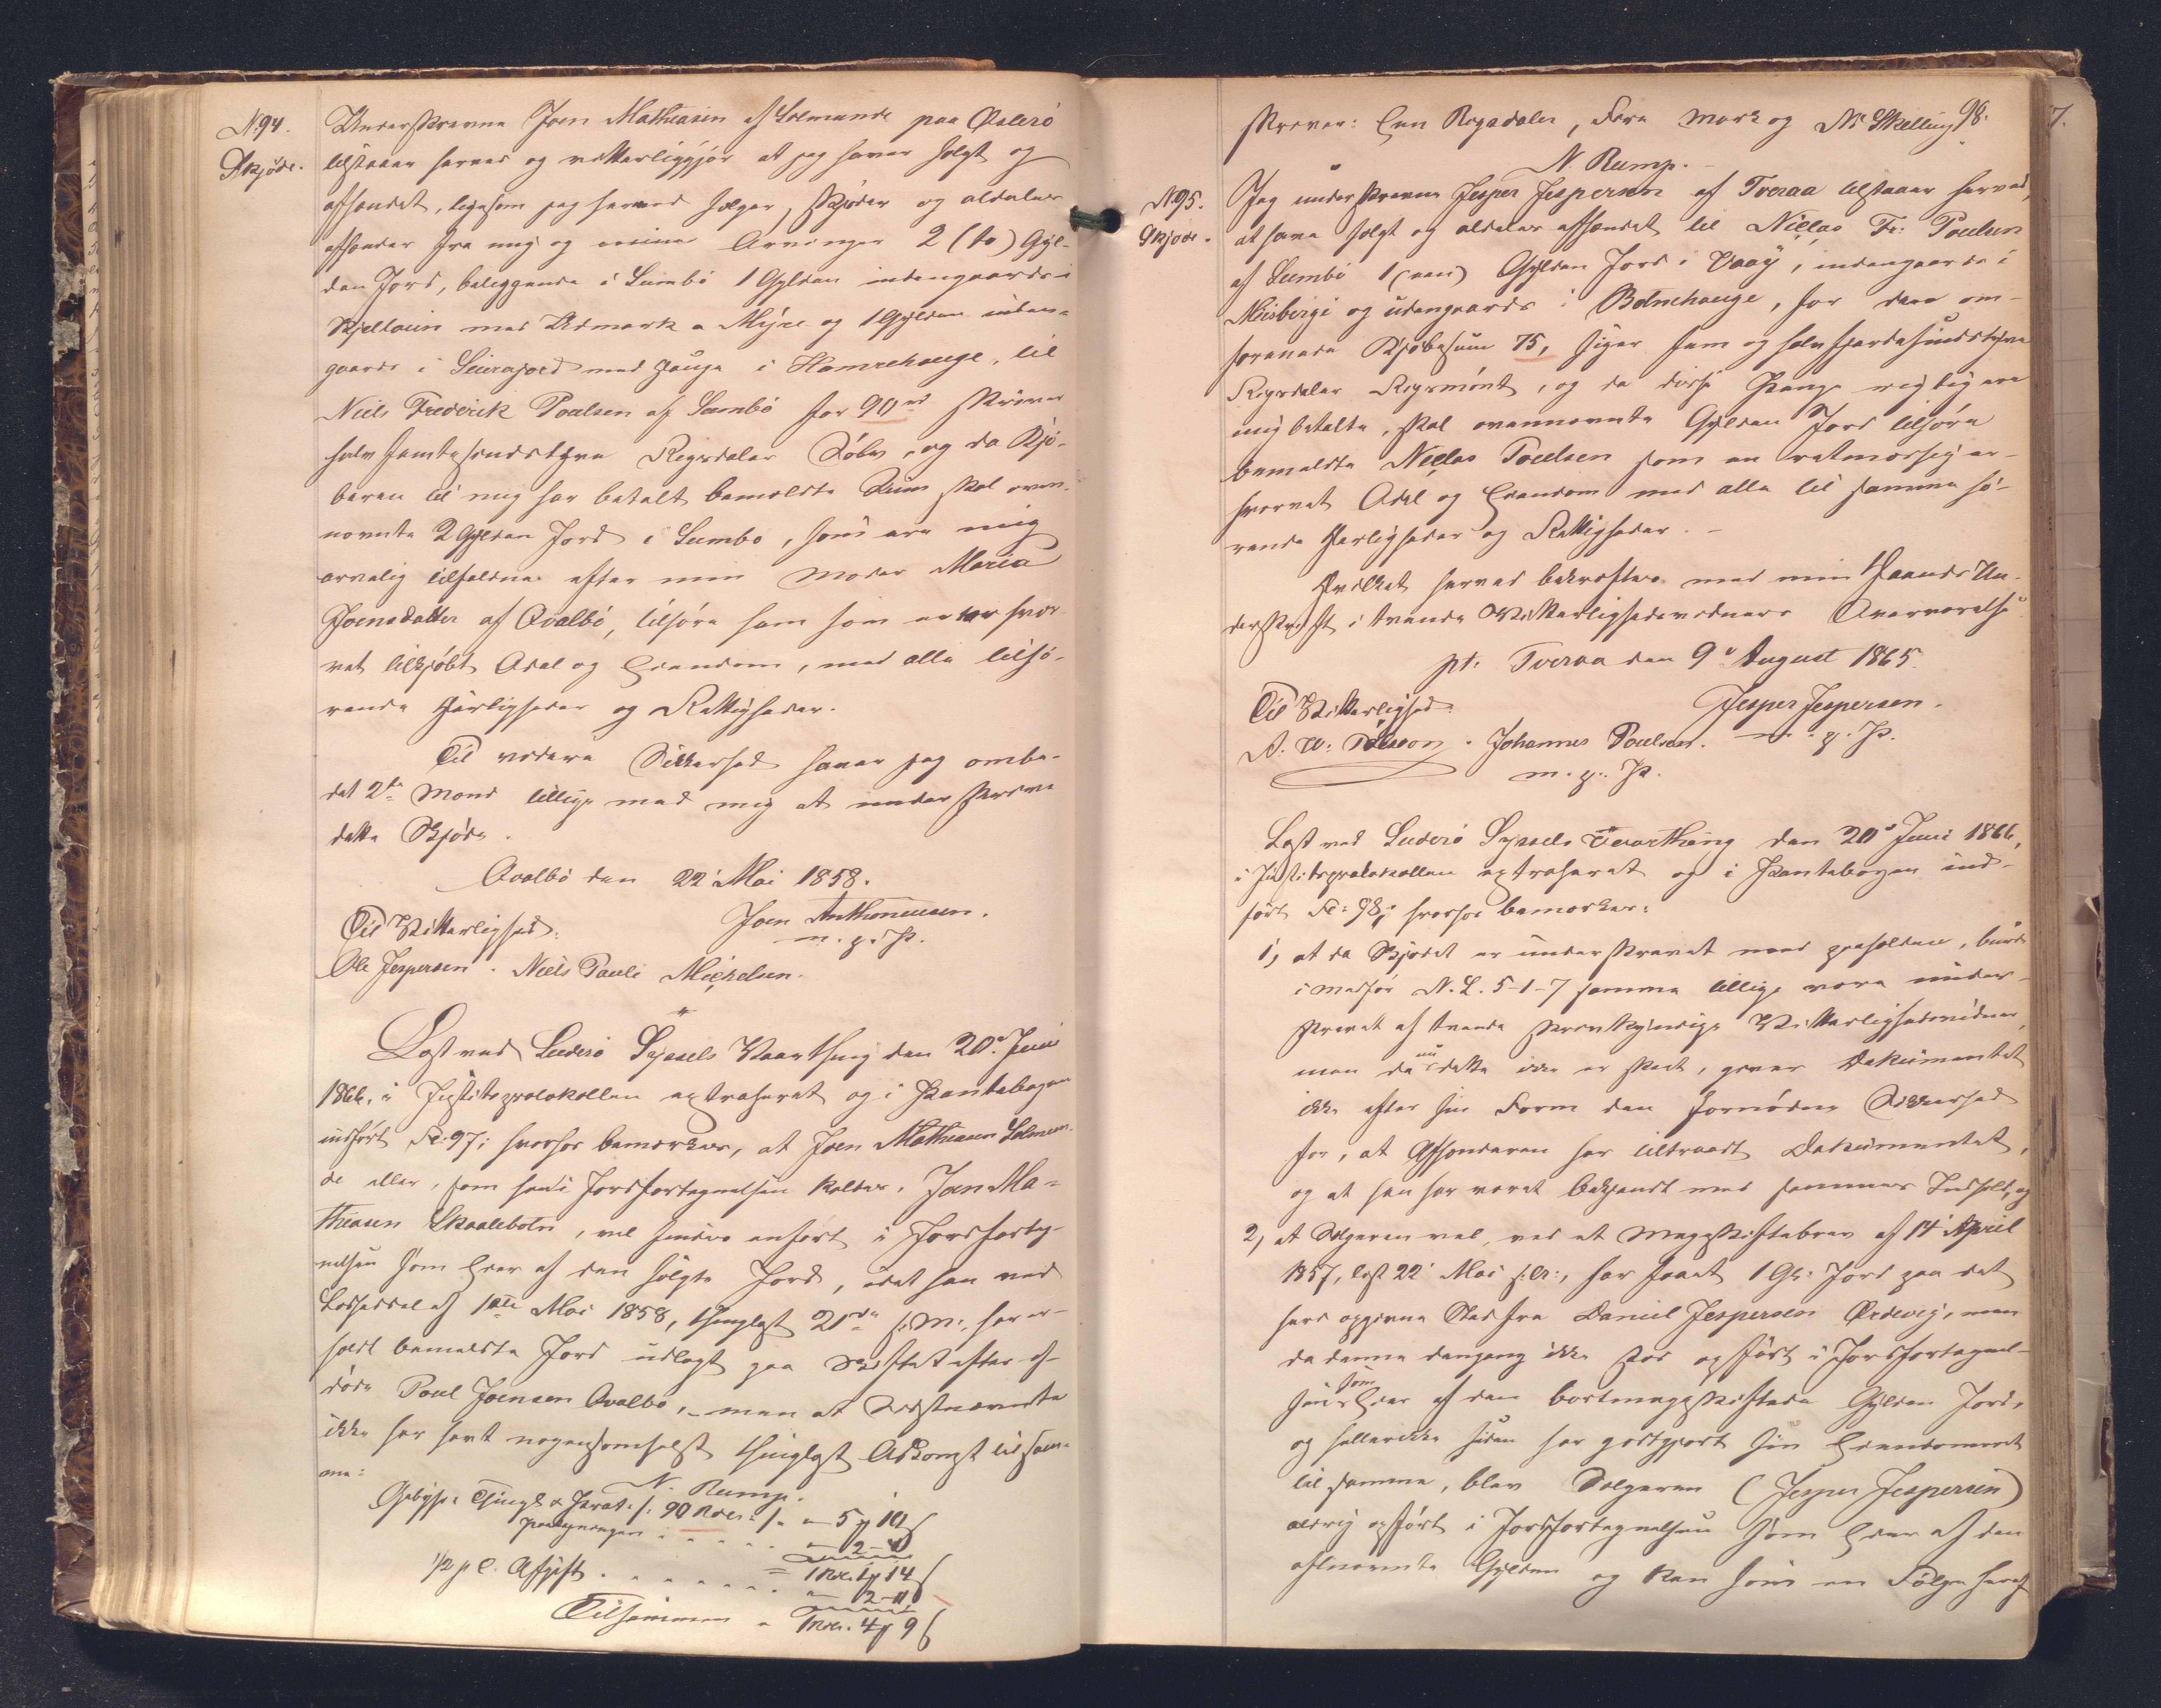 N:94.
Skjöde.
Underskrevne Joen Mathiasen af Solmunde paa Österö
tilstaaer herved og vitterliggjör at jeg haver solgt og
afhændet, ligesom jeg herved sælger, skjöder og aldeles
afhænder fra mig og mine Arvinger 2 (to) Gyl-
den Jord, beliggende i Sumbö 1 Gylden indengaards i
Kjellarin med Udmark a Myre og 1 Gylden inden-
gaards i Seierajord med Hauge i Hamrehauge, til
Niels Frederik Poulsen af Sumbö for 90 rd skriver
halvfemtesindstyve Rigsdaler Sölv, og da Kjö-
beren til mig har betalt bemeldte Sum skal oven-
nævnte 2 Gylden Jord i Sumbo, som ere mig
arvelig tilfaldne efter min Moder Maria
Joensdatter af Qvalbö, tilhöre ham som en er hver-
vet tilkjöbt Odel og Eiendom, med alle tilhö-
rende Herligheder og Rettigheder.
Til videre Sikkerhed haver jeg ombe-
det 2de Mænd tillige med mig at underskrive
dette Skjöde.
Qvalbö den 22' Mai 1858.
Til Vitterlighed: Joen Anthoniussen.
m. p. P.
Ole Jespersen. Niels Pauli Michelsen.
Læst ved Suderö Syssels Vaarthing den 20de Juni
1866, i Justitsprotokollen extraheret og i Pantebogen
indfört Fol: 97; hvorhos bemærkes, at Joen Mathiasen Solmun-
de eller, som han i Jordfortegnelsen kaldes, Joen Ma-
thiasen Skaalebotn, vel findes anfört i Jordforteg-
nelsen som Eier af den solgte Jord, idet han ved
Lodseddel af 1ste Mai 1858, thinglæst 21de s. M., har er-
holdt bemeldte Jord udlagt paa Skiftet efter af-
döde Poul Joensen Qvalbö, men at Sidstnævnte
ikke har havt nogensomhelst thinglæst Adkomst til sam-
me:
N. Rump.
Gebyhr: Thingl. & Prot. /: 90 Rdlr :/ - 5 # 10 ß
Paategningen . . . . . - 2 -
= 1 Rdlr. 14 ß
1/2 p C. Afgift . . . . . . . 2 -
Tilsammen - 1 Rdlr. 4 # 9 ß
skriver: Een Rigsdaler, Fire Mark og Ni Skelling 98.
N. Rump.
N95.
Skjöde.
Jeg underskrevne Jesper Jespersen af Tveraa tilstaaer herved,
at have solgt og aldeles afhændet til Niclas Fr: Poulsen
af Sumbö 1 (een) Gylden Jord i Vaag, indengaards i
Neisbergi og udengaards i Botnehauge, for den om-
forenede Kjöbesum 75, siger fem og halvfjerdesindstyve
Rigsdaler Rigsmönt, og da disse Penge rigtig ere
mig betalte, skal ovennævnte Gylden Jord tilhöre
bemeldte Niclas Poulsen som en retmæssig er-
hvervet Odel og Eiendom med alle til samme hö-
rende Herligheder og Rettigheder. -
Hvilket herved bekræftes med min Haands Un-
derskrift i tvende Vitterlighedsvidners Overværelse
pt. Tveraa den 9' August 1865.
Til Vitterlighed: Jesper Jespersen.
Johannes Poulsen. m. p. P.
m. p. P.
Læst ved Suderö Syssels Vaarthing den 20' Juni 1866,
i Justitsprotokollen extraheret og i Pantebogen ind-
fört Fol: 98; hvorhos bemærkes:
1, at da Skjödet er underskrevet med paaholden, burde
i Medför N. L. 5-1-7 samme tillige være under-
skrevet af tvende skrivkyndige Vitterlighedsvidner,
men da nu dette ikke er skeet, giver Dokumentet
ikke efter sin Form den fornödne Sikkerhed
for, at Afhænderen har tiltraadt Dokumentet,
og at han har været bekjendt med sammes Indhold, og
2, at Sælgeren vel, ved et Mageskiftebrev af 14' April
1857, læst 22' Mai s. A:, har faaet 1 Gl: Jord paa det
heri opgivne Sted fra Daniel Jespersen Ördevig, men
da denne dengang ikke stod opfört i Jordfortegnel-
sen som Eier af den bortmageskiftede Gylden Jord,
og hellerikke siden har godtgjort sin Eiendomsret
til samme, blev Sælgeren (Jesper Jespersen)
aldrig opfört i Jordfortegnelsen som Eier af den
oftnævnte Gylden og kan som en Fölge heraf